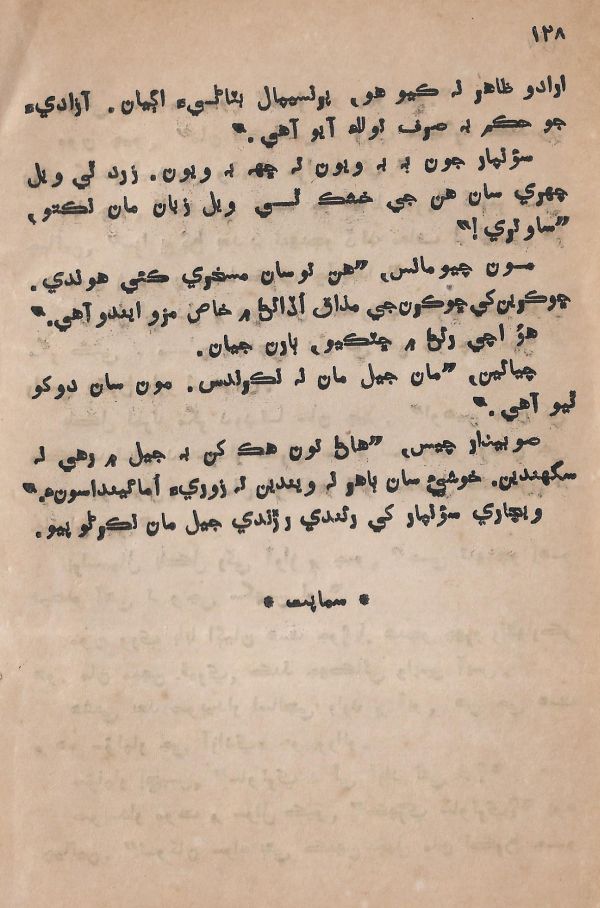 ۱۲۸
ارادو ظاهر نہ ڪيو هو، پرنسيپال پٽاڻيءَ اڳيان. آزاديءَ
جو حڪم بہ صرف توللاءِ آيو آهي.“
سؤنهار جون ٻہ بہ ويون تہ ڇهہ بہ ويون. زرد ٿي ويل
چهري سان هن جي خشڪ ٿي ويل زبان مان نڪتو،
”ساوتري!“
مون چيومانس، ”هن توسان مسخري ڪئي هوندي.
ڇوڪرين کي ڇوڪرن جي مذاق اُڏائڻ ۾ خاص مزو ايندو آهي.“
هؤ اچي رئڻ ۾ ڇٽڪيو، ٻارن جيان.
چيائين، ”مان جيل مان نہ نڪرندس. مون سان دوکو
ٿيو آهي.“
صوبيدار چيس، ”هاڻ تون هڪ کن بہ جيل ۾ رهي نہ
سگهندين. خوشيءَ سان ٻاهر نہ ويندين تہ زوريءَ اُماڻينداسونءِ.“
ويچاري سؤنهار کي رئندي رڙندي جيل مان نڪرڻو پيو.
* سماپت *